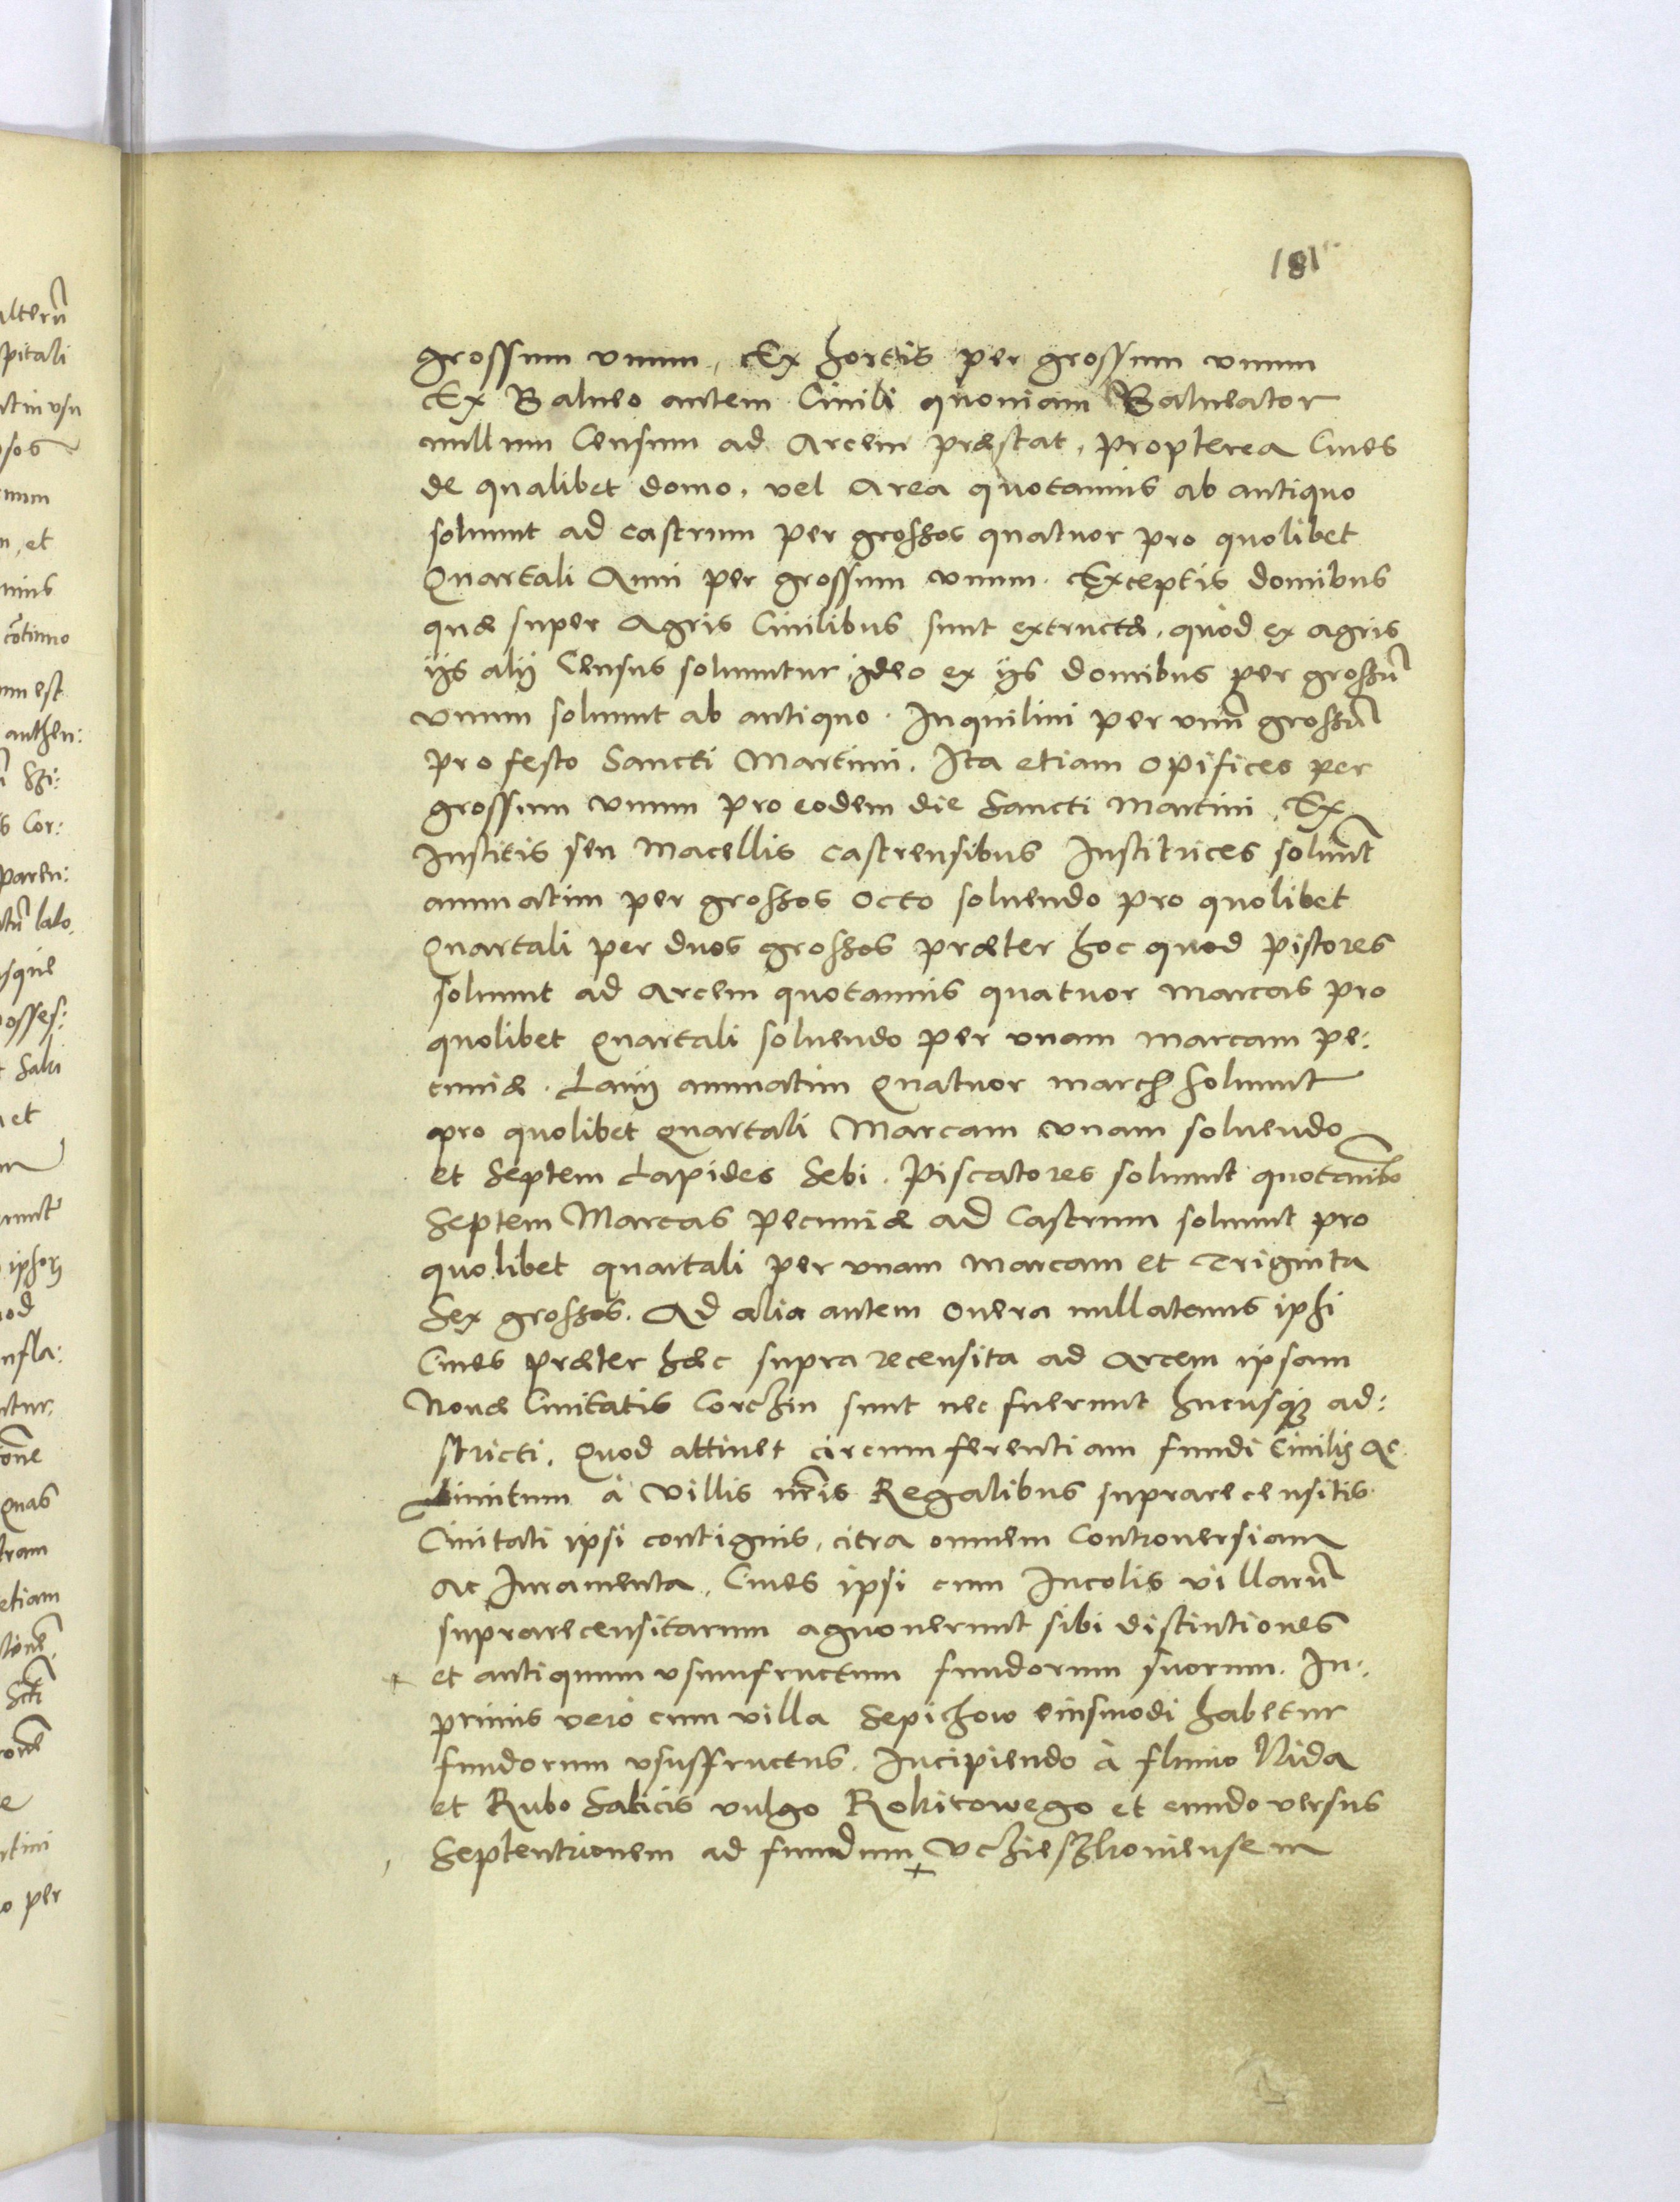 181
grossum vnum, Ex hortis per grossum vnum
Ex Balneo autem Ciuili quoniam Balneator
nullum Censum ad Arcem præstat, propterea Ciues
de qualibet domo, vel Area quotannis ab antiquo
soluunt ad castrum per grossos quatuor pro quolibet
Quartali Anni per grossum vnum. Exceptis domibus
quæ super Agris Ciuilibus sunt extructæ, quòd ex agris
ijs alij Census soluuntur, ideo ex ijs domibus per grossũ
vnum soluunt ab antiquo. Inquilini per vnũ grossũ
pro festo Sancti Martini. Ita etiam opifices per
grossum vnum pro eodem die Sancti Martini. Ex
Institis seu Macellis castrensibus Institrices soluũt
annuatim per grossos octo soluendo pro quolibet
Quartali per duos grossos præter hoc quod pistores
soluunt ad Arcem quotannis quatuor Marcas pro
quolibet Quartali soluendo per vnam marcam pe:
cuniæ. Lanij annuatim Quatuor march soluunt
pro quolibet Quartali Marcam vnam soluendo
et Septem Lapides Sebi. Piscatores soluunt quotannis
Septem Marcas pecuniæ ad Castrum soluunt pro
quolibet quartali per vnam marcam et Triginta
Sex grossos. Ad alia autem onera nullatenus ipsi
Ciues præter hæc supra recensita ad Arcem ipsam
Nouæ Ciuitatis Corczin sunt nec fuerunt hucusq̃ ad:
stricti. Quod attinet circumferentiam fundi Ciuilis ac
Limitum à Villis nr̃is Regalibus suprarecensitis
Ciuitati ipsi contiguis, citra omnem Controuersiam
ac Iuramenta, Ciues ipsi cum Incolis villarũ
suprarecensitarum agnouerunt sibi distinctiones
et antiquum vsumfructum fundorum suorum. In:
primis verò cum villa Sepichow eiusmodi habetur
fundorum vsusfructus. Incipiendo à fluuio Nida
et Rubo Salicis vulgo Rokitowego et eundo versus
Septentrionem ad fundum Vcziesskouiensem